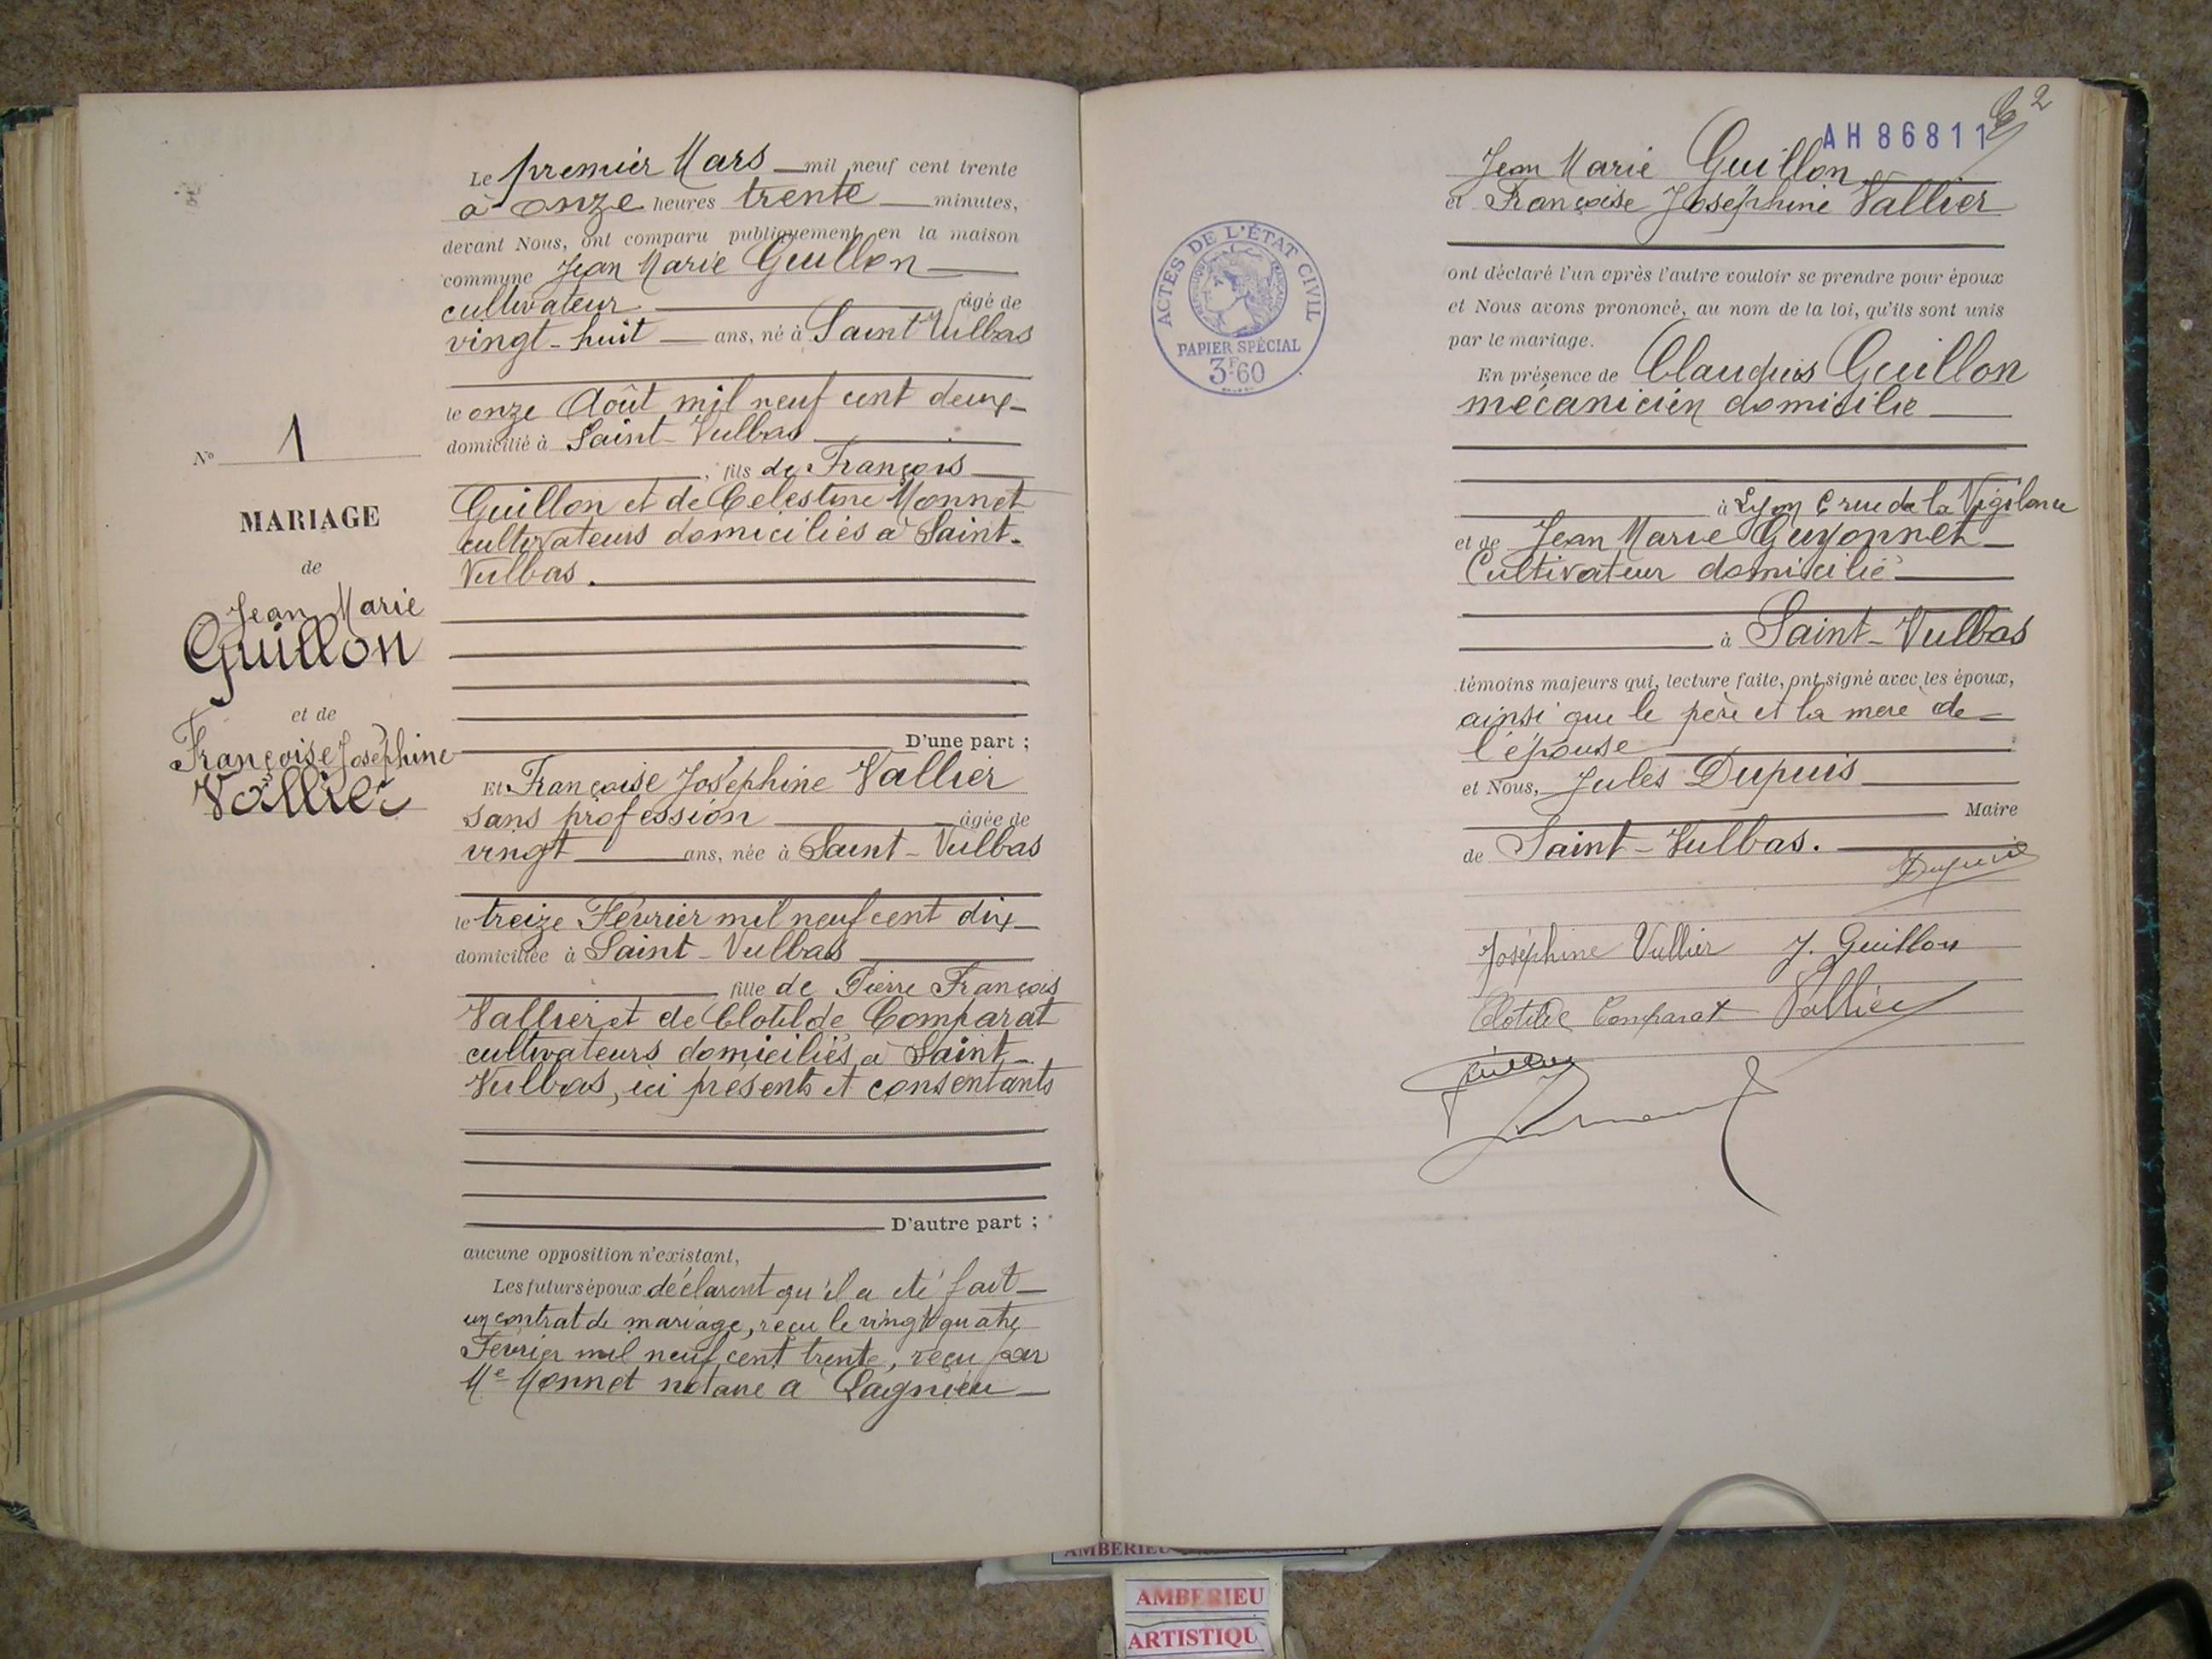 Le premier Mars mil neuf cent trente
à onze heures trente minutes,
devant Nous, ont comparu publiquement en la maison
commune Jean Marie Guillon
cultivateur âgé de
vingt-huit ans, né à Saint-Vulbas
le onze Août mil neuf cent deux
domicilié à Saint-Vulbas
, fils de François
Guillon et de Celestine Monnet
cultivateurs domiciliés à Saint-
Vulbas.
D'une part ;
Nº 1
MARIAGE
de
Jean Marie
Guillon
et de
Françoise Joséphine
Vallier
Et Françoise Joséphine Vallier
sans profession âgée de
vingt ans, née à Saint-Vulbas
le treize Février mil neuf cent dix
domiciliée à Saint-Vulbas
, fille de Pierre François
Vallier et de Clotilde Comparat
cultivateurs domiciliés à Saint-
Vulbas, ici présents et consentants
D'autre part ;
aucune opposition n'existant,
Les futurs époux déclarent qu'il a été fait
un contrat de mariage, reçu le vingt quatre
Février mil neuf cent trente, reçu par
Me Monnet notaire à Lagnieu
2
AH 86811
Jean Marie Guillon
et Françoise Joséphine Vallier
ACTES DE L'ÉTAT CIVIL
PAPIER SPÉCIAL
3F60
ont déclaré l'un après l'autre vouloir se prendre pour époux
et Nous avons prononcé, au nom de la loi, qu'ils sont unis
par le mariage.
En présence de Claudius Guillon
mécanicien domicilié
à Lyon 6 rue de la Vigilance
et de Jean Marie Guyonnet
Cultivateur domicilié
à Saint-Vulbas
témoins majeurs qui, lecture faite, ont signé avec les époux,
ainsi que le père et la mère de
l'épouse
et Nous, Jules Dupuis
Maire
de Saint-Vulbas.
Dupuis
Joséphine Vallier J. Guillon
Clotilde Comparat Vallier
Guillon
AMBERIEU
AMBERIEU
ARTISTIQU